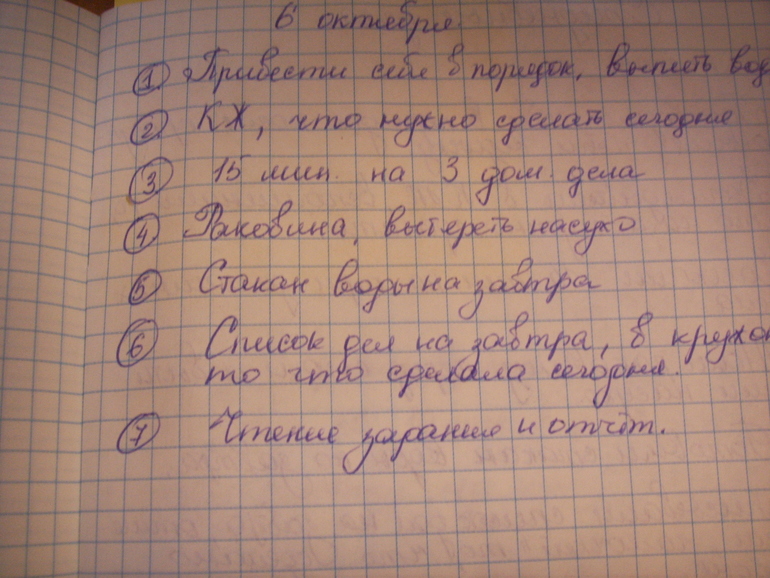 6 октября
1 Привести себя в порядок, выпить вод
2 КЖ, что нужно сделать сегодня
3 15 мин. на 3 дом. дела
4 Раковина, вытереть насухо
5 Стакан воды на завтра
6 Список дел на завтра, в кружок
то что сделала сегодня.
7 Чтение задания и отчёт.